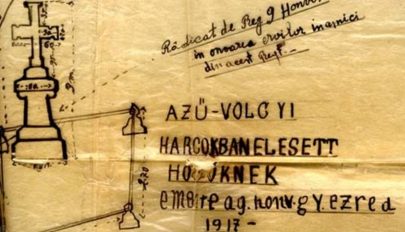 Rădicat de Reg 9 Honv
in onoarea eroilor inamici
din acest Regt.
AZŰ-VOLGYI
HARCOKBAN ELESETT
HŐSÖKNEK
a 9. honv gy. ezred
1917-